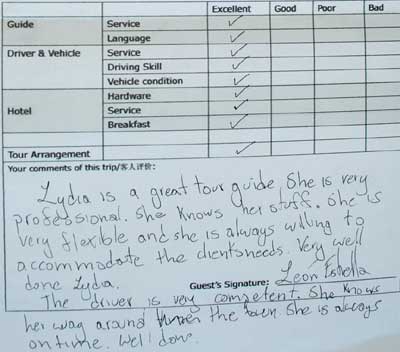 Excellent Good Poor Bad
Guide Service ✓
Language ✓
Driver & Vehicle Service ✓
Driving Skill ✓
Vehicle condition ✓
Hotel Hardware ✓
Service ✓
Breakfast ✓
Tour Arrangement ✓
Your comments of this trip/客人评价:
Lydia is a great tour guide. She is very
professional. She knows her stuff. She is
very flexible and she is always willing to
accommodate the clients needs. Very well
done Lydia.
Guest's Signature: Leon Estella
The driver is very competent. She knows
her way around the town She is always
on time. Well done.